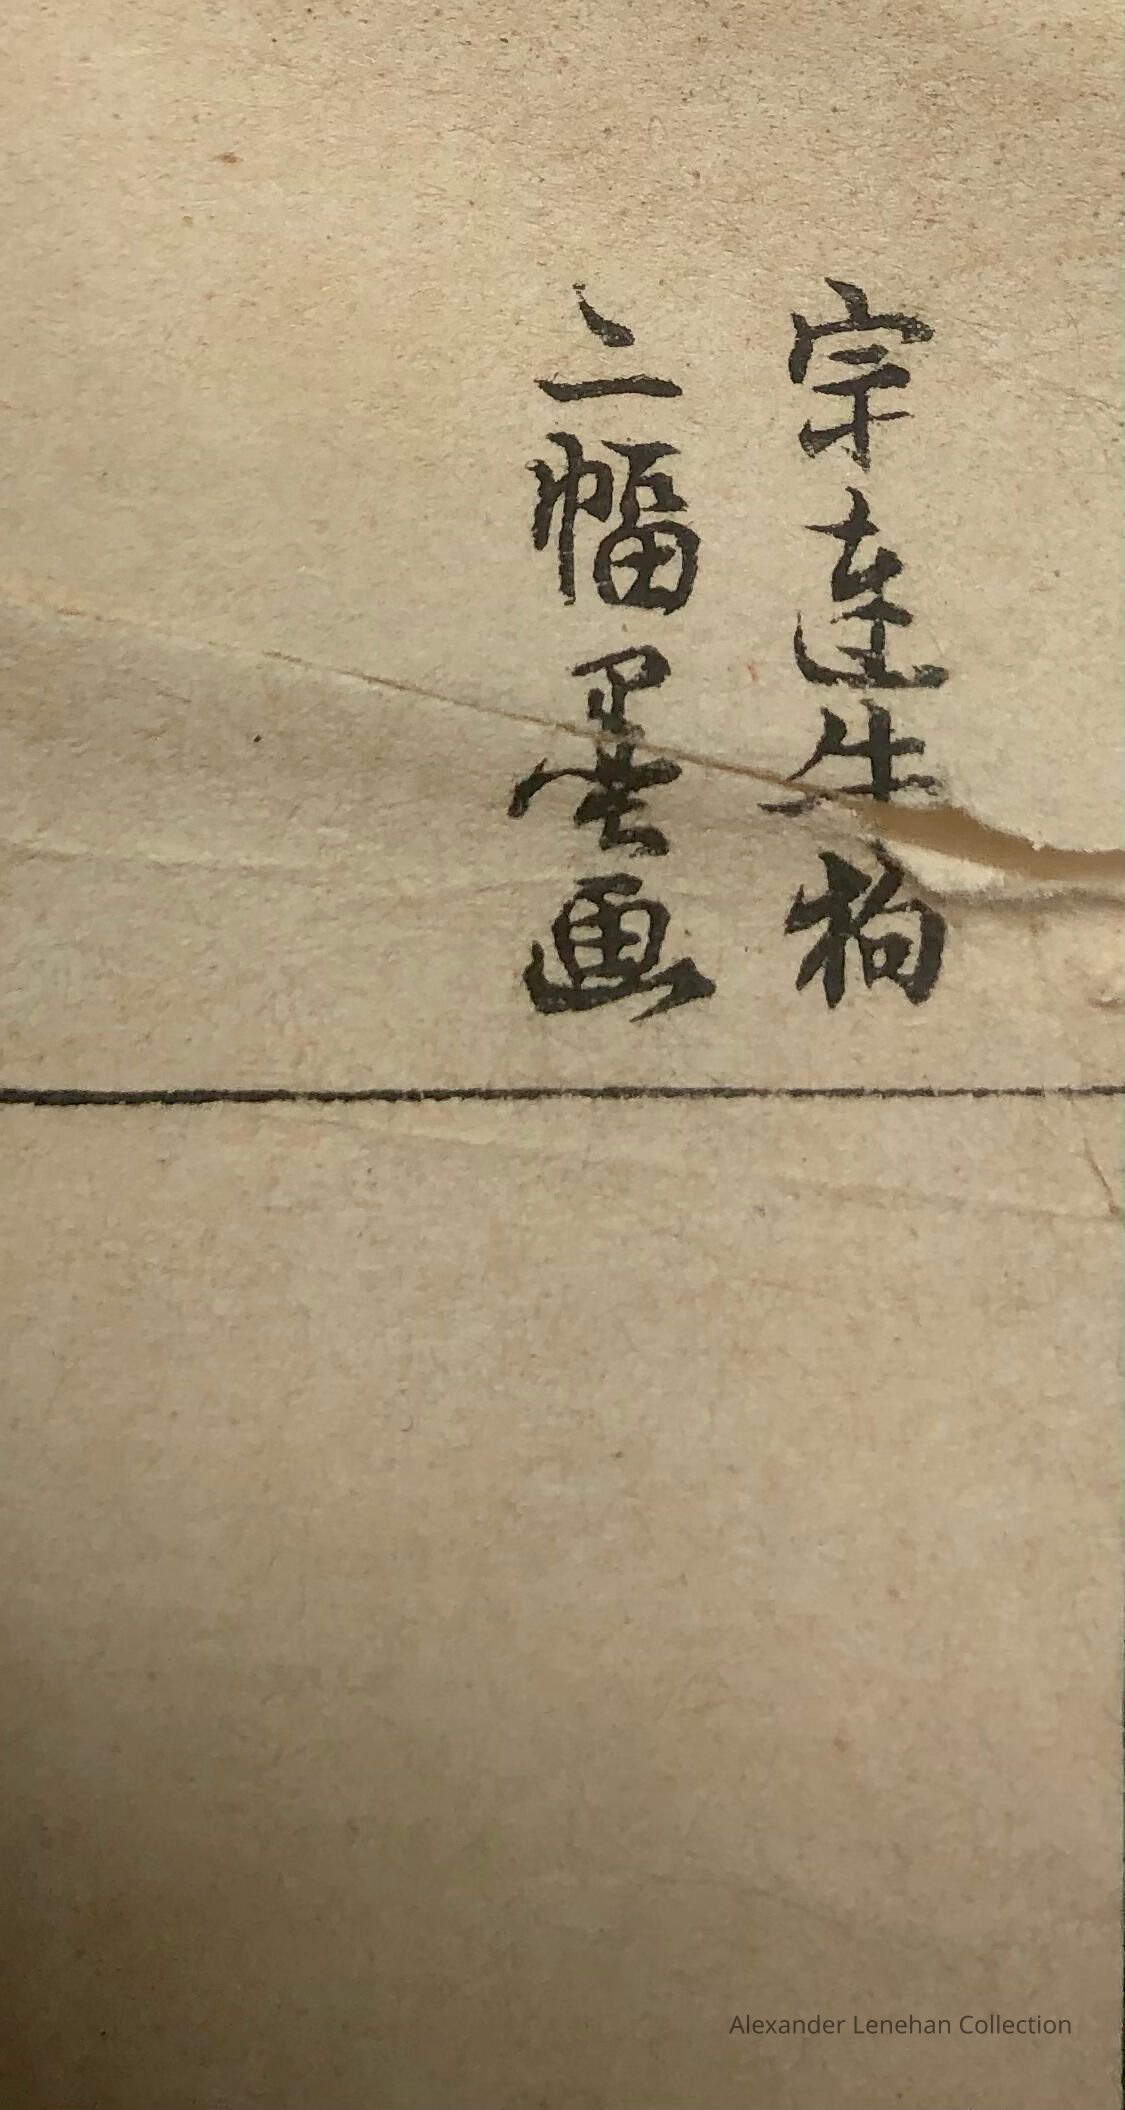 宗達牛狗
二幅墨画
Alexander Lenehan Collection